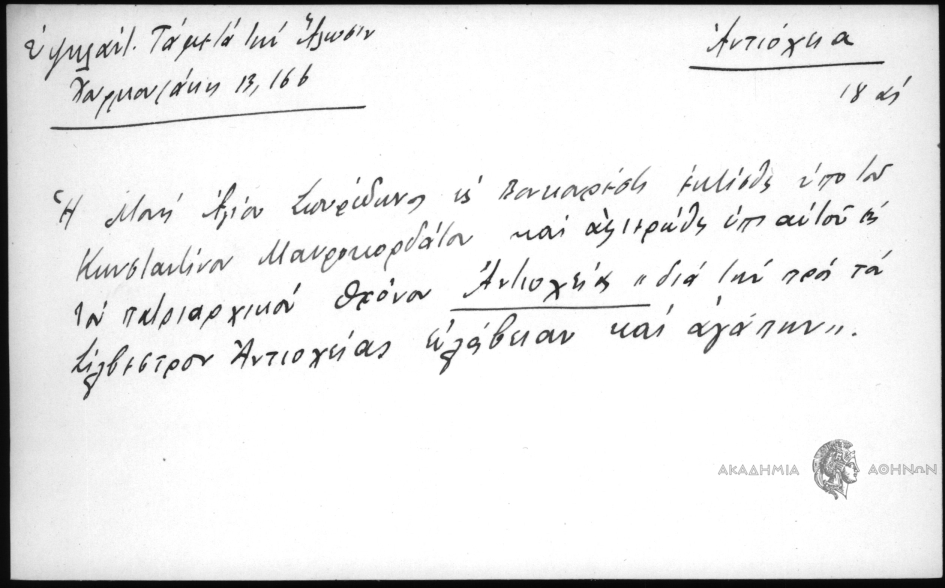 Ὑψηλάντ. Τὰ μετὰ τὴν Ἅλωσιν
Κουρμουζάκης 13, 166
Ἀντιόχεια
18 αἰ
Ἡ Μονή Ἁγίου Σπυρίδωνος ἐν Βουκαρέστῃ ἐκτίσθη ὑπὸ τοῦ
Κωνσταντίνου Μαυροκορδάτου καὶ ἀφιερώθη ὑπ' αὐτοῦ εἰς
τὸν πατριαρχικὸν θρόνον Ἀντιοχείας "διὰ τὴν πρὸς τὸν
Σίλβεστρον Ἀντιοχείας εὐλάβειαν καὶ ἀγάπην".
ΑΚΑΔΗΜΙΑ ΑΘΗΝΩΝ